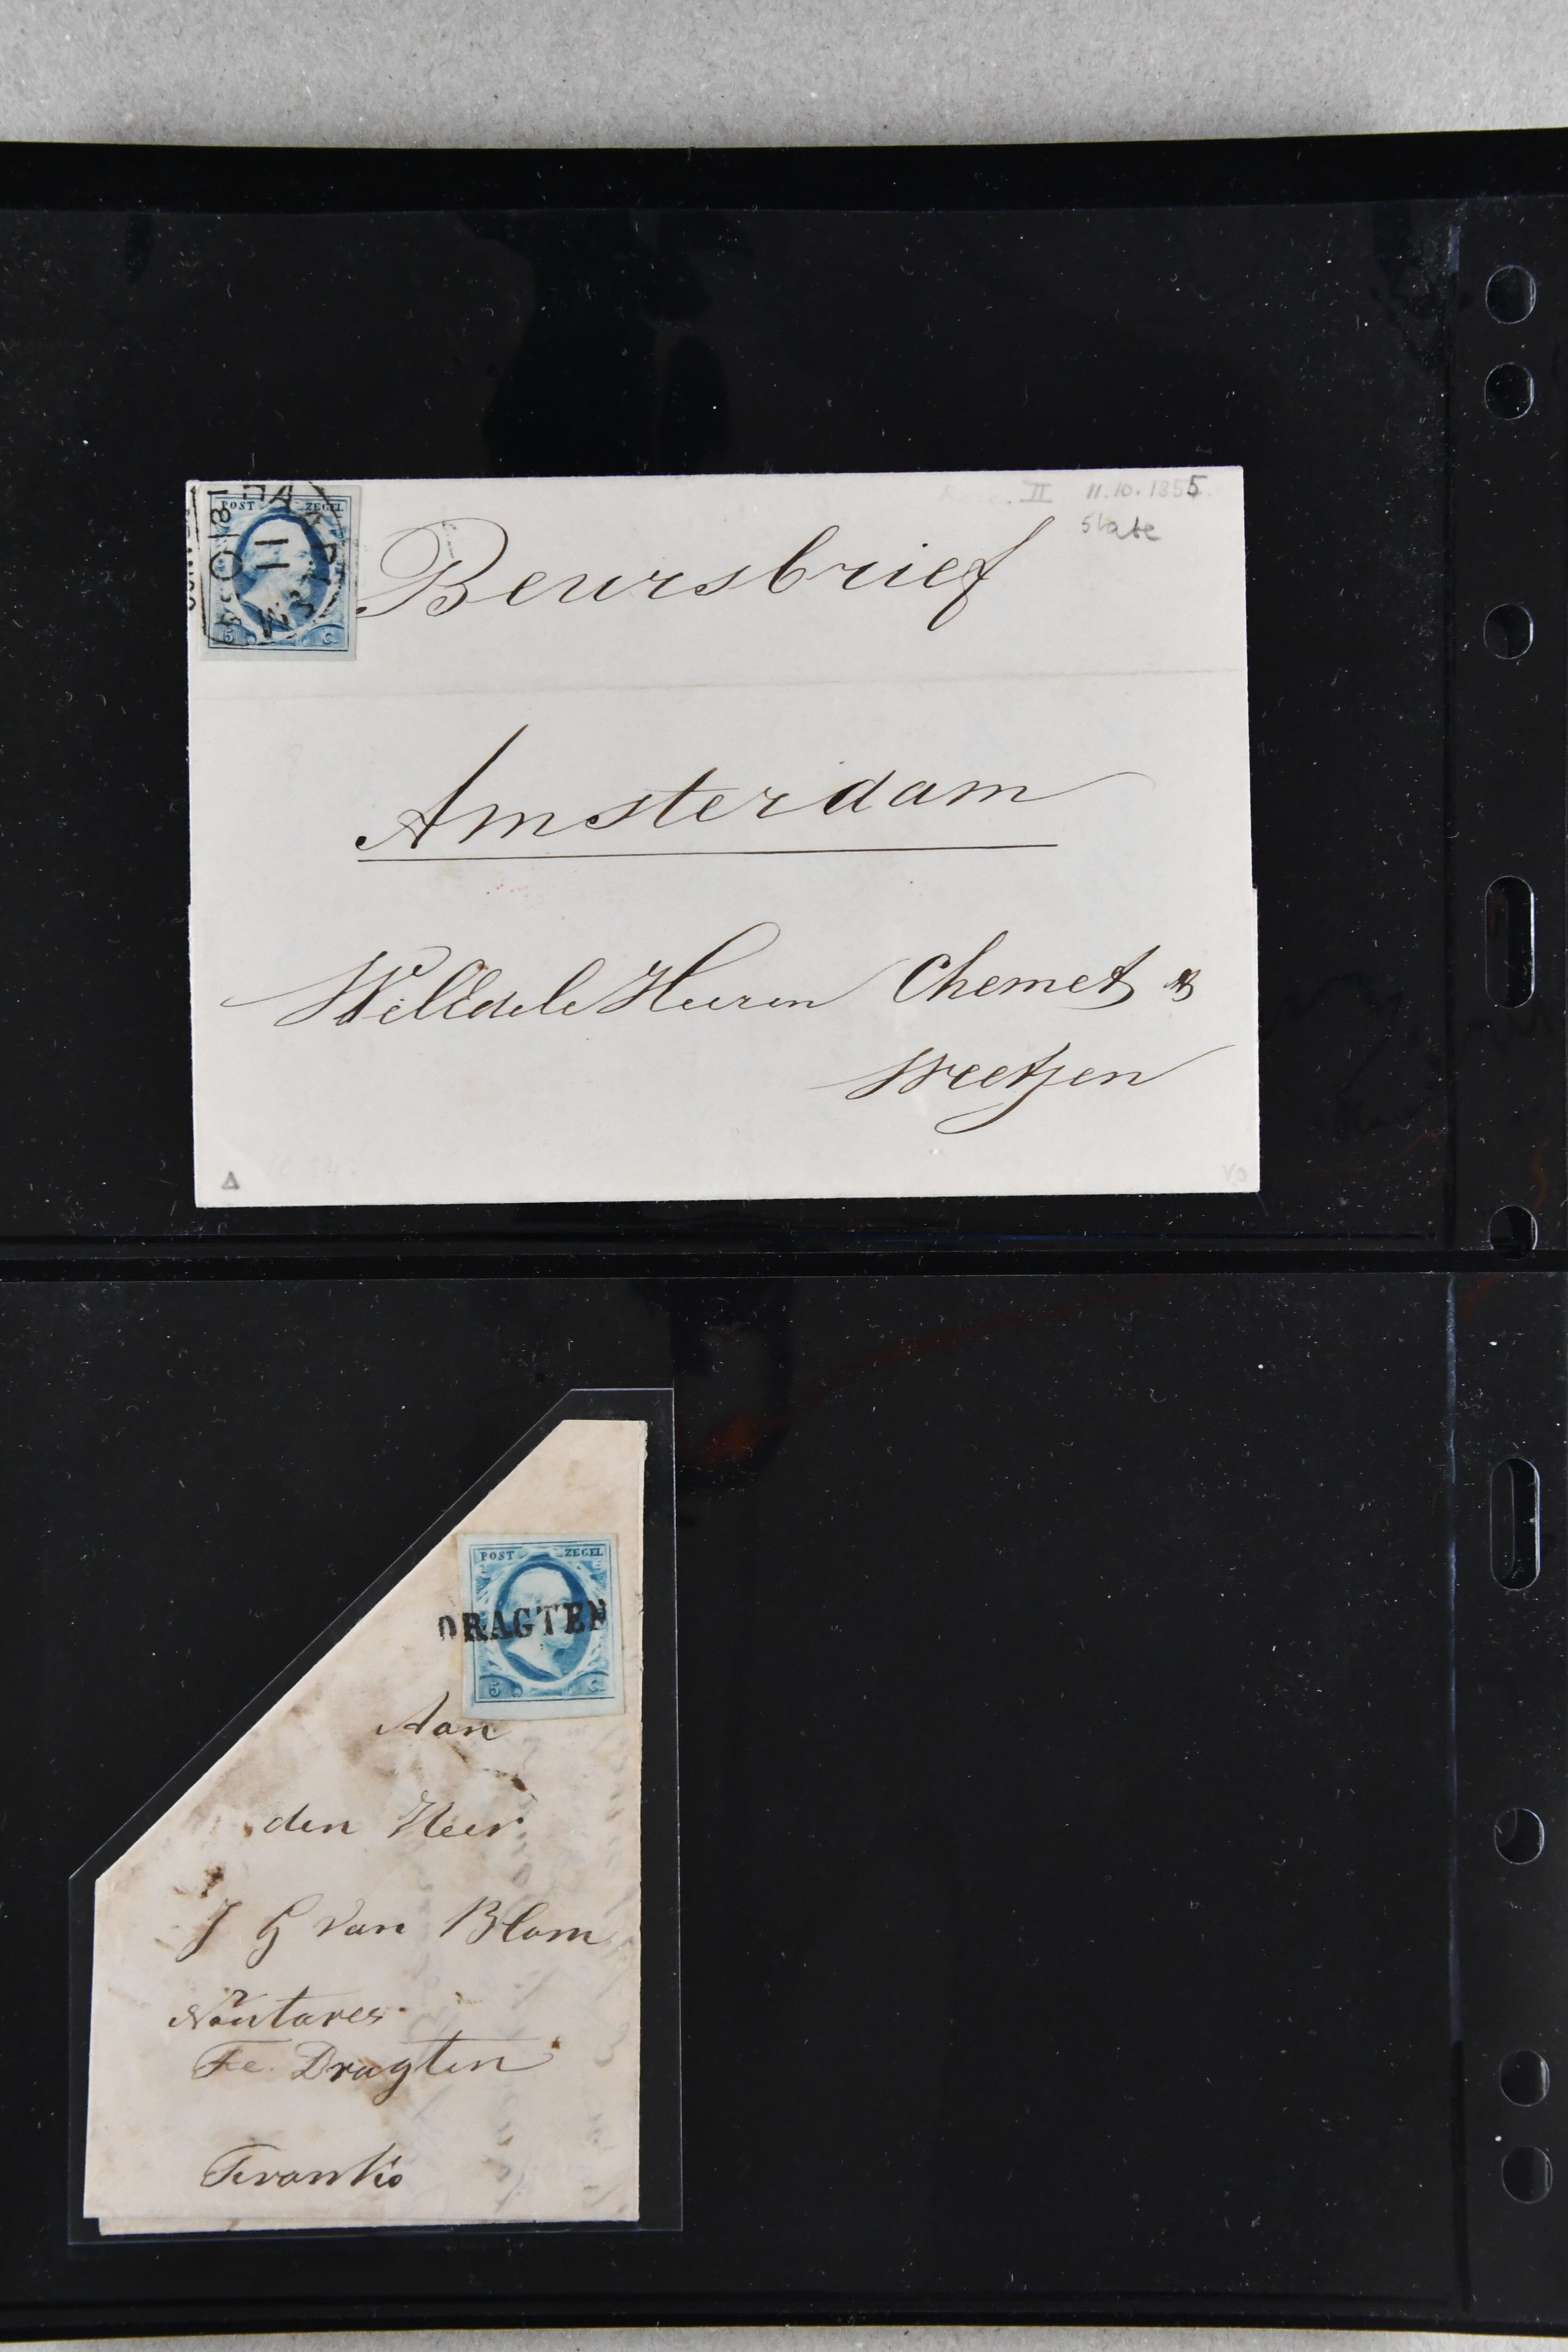 II 11.10.1855.
state
POST ZEGEL
11
5 C.
Beursbrief
Amsterdam
WelEdele Heeren Chemet &
Weetjen
Δ
POST ZEGEL
DRAGTEN
5 C.
Aan
den Heer
J G van Blom
Notares
Te Dragten
Franko